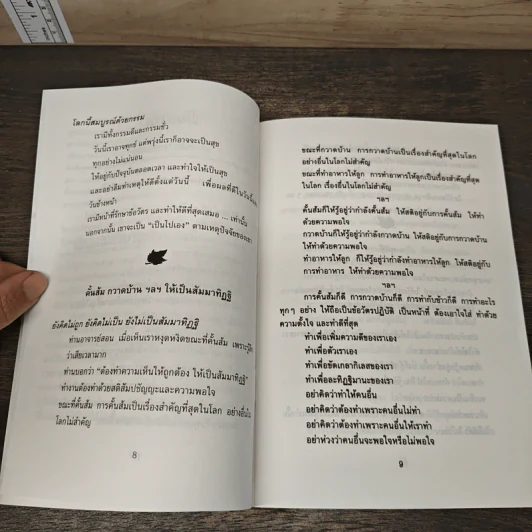 โลกนี้สมบูรณ์ด้วยกรรม
เรามีทั้งกรรมดีและกรรมชั่ว
วันนี้เราอาจทุกข์ แต่พรุ่งนี้เราก็อาจจะเป็นสุข
ทุกอย่างไม่แน่นอน
ให้อยู่กับปัจจุบันตลอดเวลา และทำใจให้เป็นสุข
และอย่าลืมทำเหตุให้ดีตั้งแต่วันนี้ เพื่อผลที่ดีใน
วันข้างหน้า
เรามีหน้าที่รักษาข้อวัตร และทำให้ดีที่สุดเสมอ ... เท่านั้น
นอกจากนั้น เขาจะเป็น "เป็นไปเอง" ตามเหตุปัจจัยของ
คั้นส้ม กวาดบ้าน ฯลฯ ให้เป็นสัมมาทิฏฐิ
ยังคิดไม่ถูก ยังคิดไม่เป็น ยังไม่เป็นสัมมาทิฏฐิ
ท่านอาจารย์สอน เมื่อเห็นเราหงุดหงิดขณะที่คั้นส้ม เพราะ
ว่าเสียเวลามาก
ท่านบอกว่า "ต้องทำความเห็นให้ถูกต้อง ให้เป็นสัมมาทิฏฐิ"
ทำงานต้องทำด้วยสติสัมปชัญญะและความพอใจ
ขณะที่คั้นส้ม การคั้นส้มเป็นเรื่องสำคัญที่สุดในโลก อย่างอื่นใน
โลกไม่สำคัญ
8
ขณะที่กวาดบ้าน การกวาดบ้านเป็นเรื่องสำคัญที่สุดในโลก
อย่างอื่นในโลกไม่สำคัญ
ขณะที่ทำอาหารให้ลูก การทำอาหารให้ลูกเป็นเรื่องสำคัญที่สุด
ในโลก เรื่องอื่นในโลกไม่สำคัญ
ฯลฯ
คั้นส้มก็ให้รู้อยู่ว่ากำลังคั้นส้ม ให้สติอยู่กับการคั้นส้ม ให้ทำ
ด้วยความพอใจ
กวาดบ้านก็ให้รู้อยู่ว่ากำลังกวาดบ้าน ให้สติอยู่กับการกวาดบ้าน
ให้ทำด้วยความพอใจ
ทำอาหารให้ลูก ก็ให้รู้อยู่ว่ากำลังทำอาหารให้ลูก ให้สติอยู่กับ
การทำอาหาร ให้ทำด้วยความพอใจ
ฯลฯ
การคั้นส้มก็ดี การกวาดบ้านก็ดี การทำกับข้าวก็ดี การทำอะไร
ทุกๆ อย่าง ให้ถือเป็นข้อวัตรปฏิบัติ เป็นหน้าที่ ต้องเอาใจใส่ ทำด้วย
ความตั้งใจ และทำดีที่สุด
ทำเพื่อเพิ่มความดีของเราเอง
ทำเพื่อตัวเราเอง
ทำเพื่อขัดเกลากิเลสของเรา
ทำเพื่อละทิฏฐิมานะของเรา
อย่าคิดว่าทำให้คนอื่น
อย่าคิดว่าต้องทำเพราะคนอื่นไม่ทำ
อย่าคิดว่าต้องทำเพราะคนอื่นให้เราทำ
อย่าห่วงว่าคนอื่นจะพอใจหรือไม่พอใจ
9